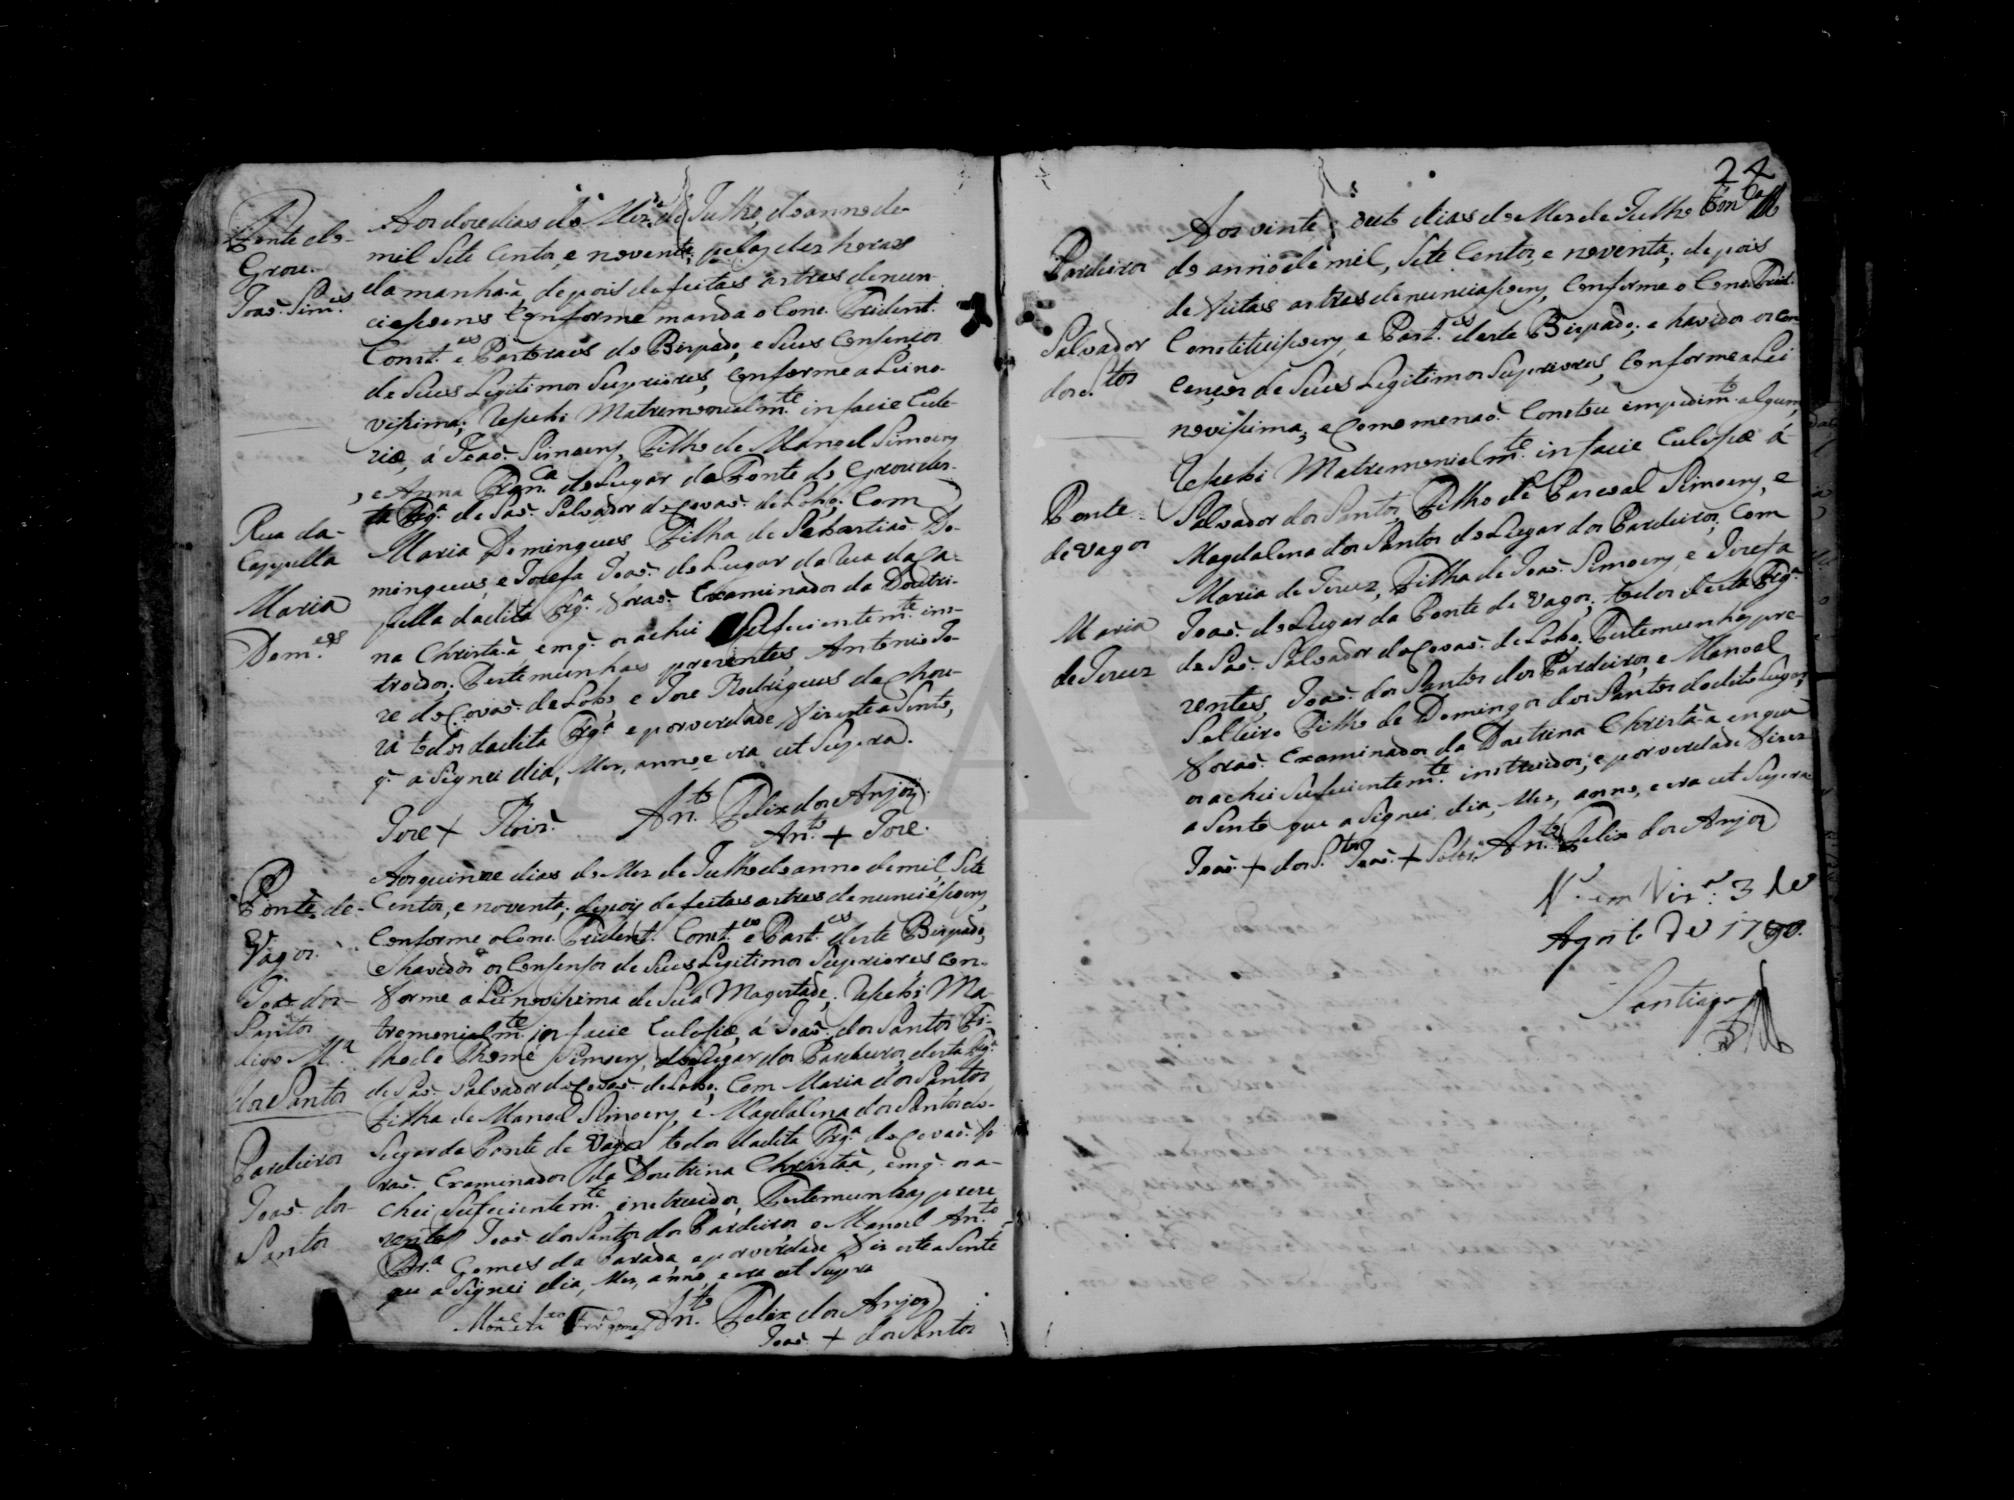 Fonte do
Grou.
Joaõ Sim.es
Aos doze dias do Mez de Julho, do anno de
mil Sete Centos, e noventa; pelas dez horas
da manhaã, depois de feitas as tres denun
ciaçoens Conforme manda o Conc. Trident.
Const.es e Pastoraes do Bispado, e Seus Consensos
de Seus Legitimos Supriores, Conforme a Lei no
vissima; Recebi Matremonialm.te in facie Ecle
ziæ, á Joaõ Simoens, Filho de Manoel Simoens
, e Anna do Lugar da Fonte do Grou des
ta Frg.a de Saõ Salvador do Covaõ do Lobo; Com
Rua da
Cappella
Maria
Dom.es
Maria Domingues, Filha de Sabastiaõ Do
mingues, e Josefa Joaõ do Lugar da Rua da Ca
pella da dita Frg.a foraõ Examinados da Doutri
na Christaã em q. os achei Suficientem.te ins
troidos; Testemunhas prezentes, Antonio Jo
ze do Covaõ do Lobo, e Joze Rodrigues da
todos da dita Frg.a e por verdade fiz este aSento,
q. aSignei dia, Mez, anno e era ut Supra.
An.to Felix dos Anjos
Joze + Roiz. An.to + Joze.
Ponte de
Vagos.
Joaõ dos
Santos
digo M.a
dos Santos
Aos quinze dias do Mez de Julho do anno de mil, Sete
Centos, e noventa; depois de feitas as tres denunciaçoens,
Conforme o Conc. Trident. Const.es e Past.es deste Bispado,
e havidos os Consensos de Seus Legitimos Supriores Con
forme a Lei novissima de Sua Magestade; Recebi Ma
tremonialm.te in facie Eclesiæ, á Joaõ dos Santos Fi
lho de Thomé Simoens, do Lugar dos Pardieiros, desta Frg.a
de Saõ Salvador do Covaõ do Lobo; Com Maria dos Santos
Filha de Manoel Simoens, e Magdalena dos Santos do
Pardieiros
Joaõ dos
Santos
Lugar da Ponte de Vagos, todos da dita Frg.a do Covaõ fo
raõ Examinados da Doutrina Christaã, em q. os a
chei Suficientem.te instruidos, Testemunhas preze
zentes Joaõ dos Santos dos Pardieiros, e Manoel An.to
Gomes da Parada, e por verdade fiz este aSento
que aSignei dia, Mez, anno, e era ut Supra
An.to Felix dos Anjos
Joaõ + dos Santos
24
Pardieiros
Salvador
dos S.tos
Aos vinte e oito dias do Mez de Julho
do anno de mil, Sete Centos, e noventa; depois
de feitas as tres denunciaçoens, Conforme o Conc. Trid.
Constituiçoens, e Past.es deste Bispado; e havidos os Con
cenços de Seus Legitimos Supriores, Conforme a Lei
novissima, e Como menaõ Constou impedim.to algum,
Recebi Matremonialm.te in facie Eclesiæ á
Ponte
de Vagos
Salvador dos Santos, Filho de Pascoal Simoens, e
Magdalena dos Santos do Lugar dos Pardieiros; Com
Maria de Jezus, Filha de Joaõ Simoens, e Jozefa
Maria
de Jezuz
Joaõ do Lugar da Ponte de Vagos; todos desta Frg.a
de Saõ Salvador do Covaõ do Lobo. Testemunhas pre
zentes, Joaõ dos Santos dos Pardieiros, e Manoel
Solteiro Filho de Domingos dos Santos do dito Lugar;
foraõ Examinados da Doutrina Christaã em que
os achei Suficientem.te instruidos; e por verdade fiz es
aSento que aSignei, dia, Mez, anno, e era ut Supra
Joaõ + dos S.tos An.to Felix dos Anjos
V.o em Viz.a 3 de
Agosto de 1790.
Santiago
ADAV